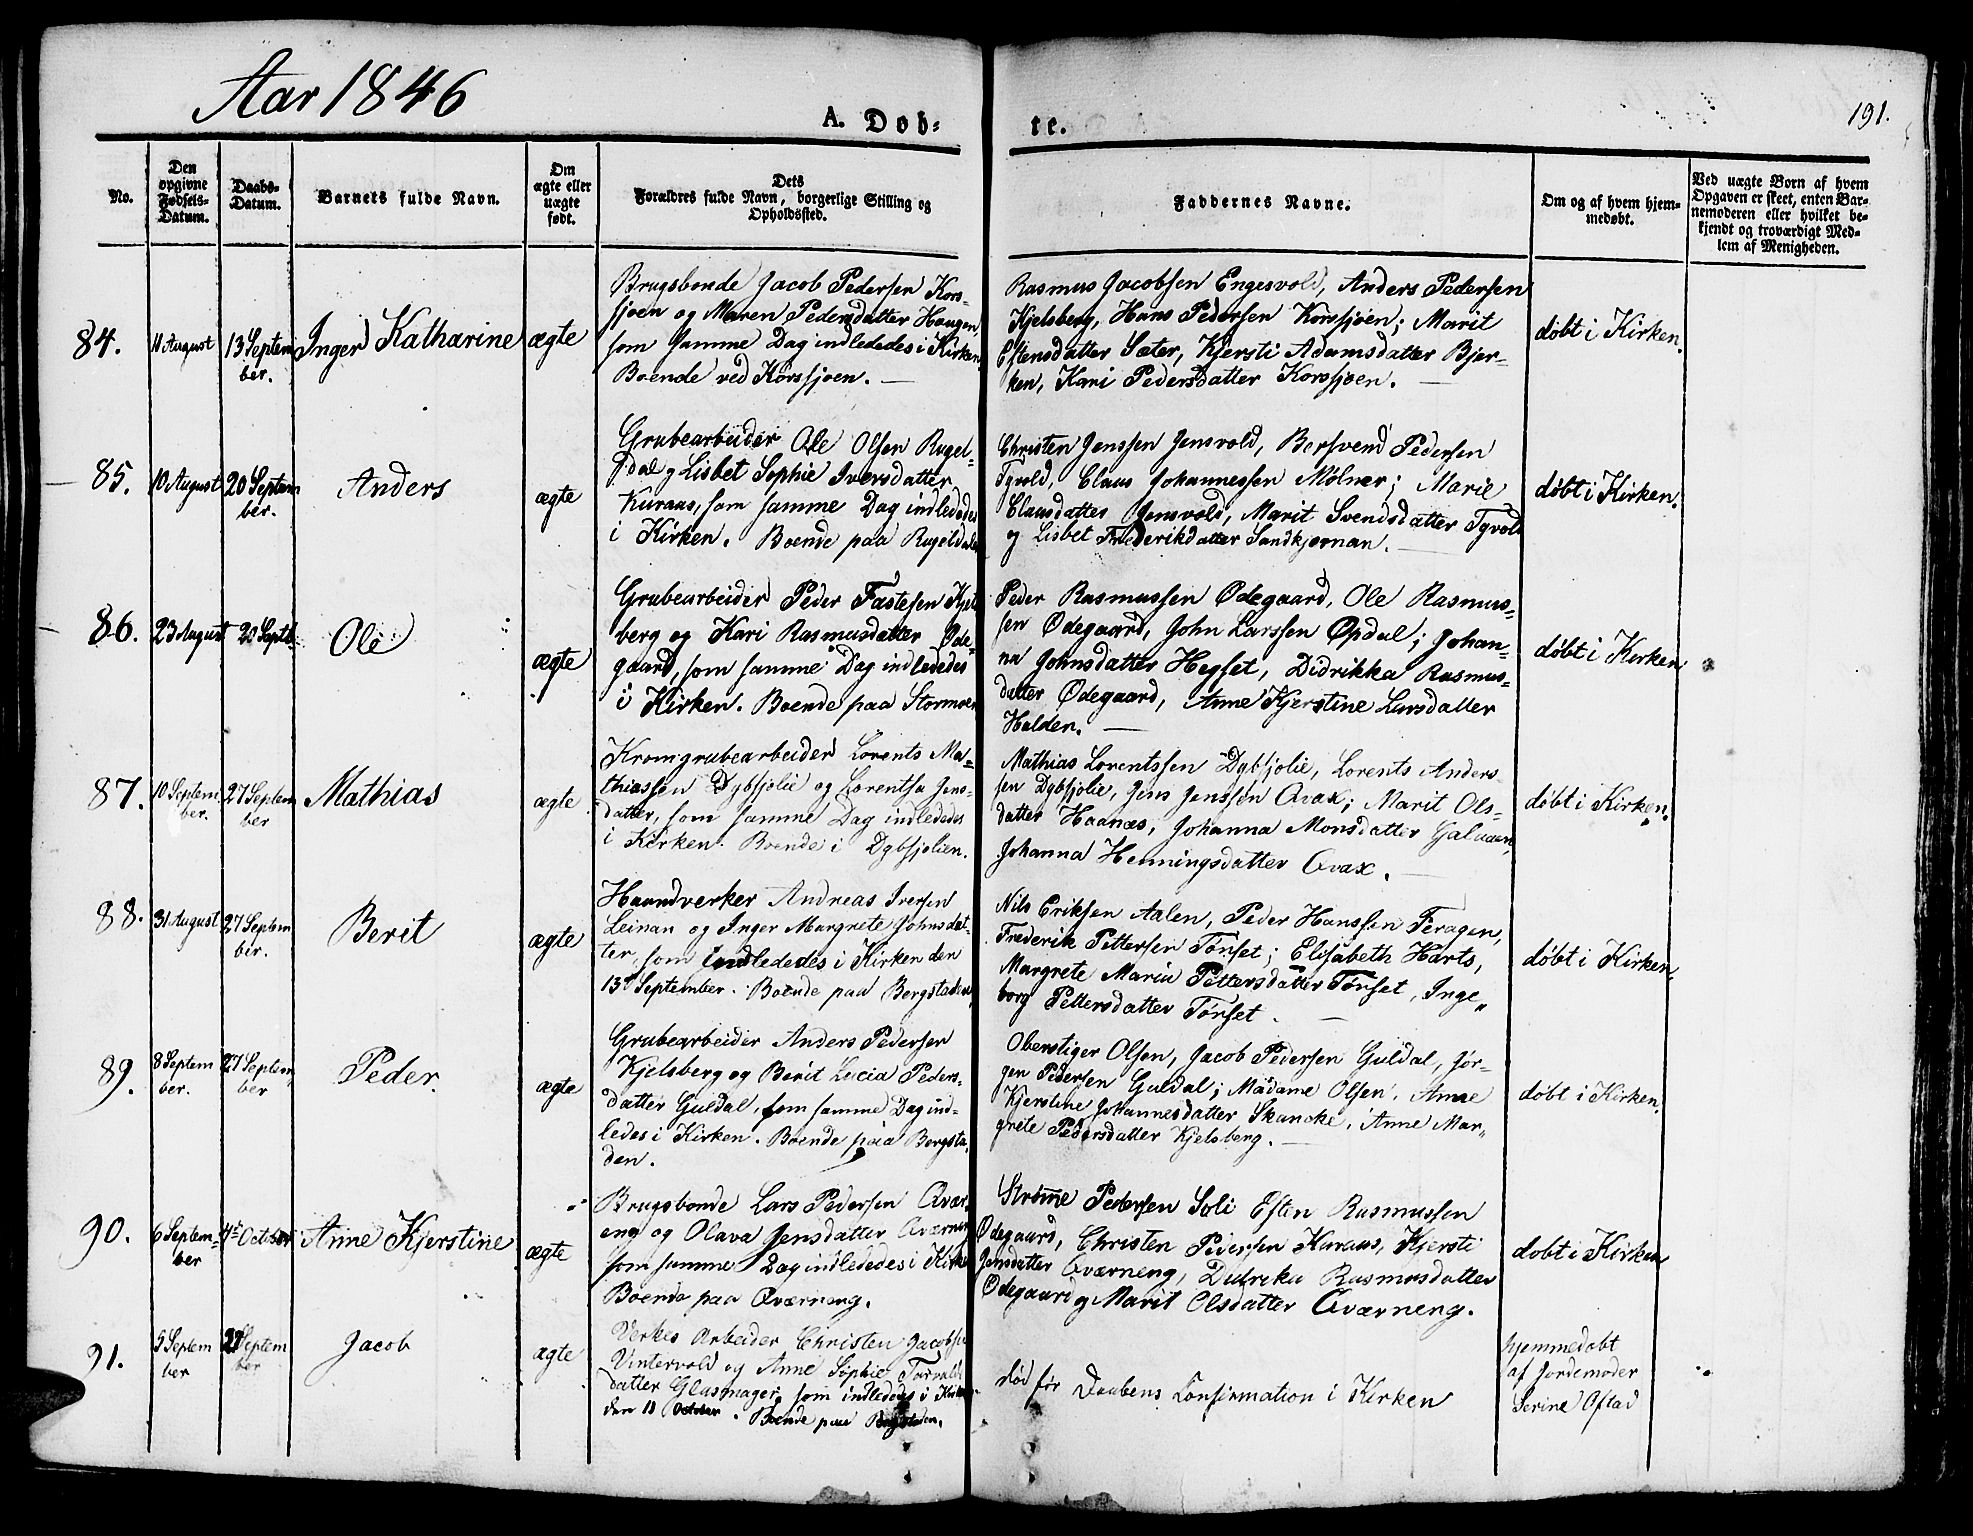 Aar 1846
A. Døb-
te.
191.
No.
Den
opgivne
Fødsels-
Datum.
Daabs-
Datum.
Barnets fulde Navn.
Om
ægte eller
uægte
født.
Dets
Forældres fulde Navn, borgerlige Stilling og
Opholdssted.
Faddernes Navne.
Om og af hvem hjem-
medøbt.
Ved uægte Born af hvem
Opgaven er skeet, enten Bar-
nemoderen eller hvilket be-
kjendt og troværdigt Med-
lem af Menigheden.
84.
11 August
13 Septem
ber.
Inger Katharine
ægte
Brugsbonde Jacob Pedersen Kors-
sjoen og Maren Pedersdatter Haugen
som samme Dag indlededes i Kirken
Boende ved Korssjoen. —
Rasmus Jacobsen Engesvold, Anders Pedersen
Kjelsberg, Hans Pedersen Korssjoen; Marit
Estensdatter Sæter, Kjersti Adamsdatter Bjer-
ken, Kari Pedersdatter Korssjoen. —
døbt i Kirken.
85.
10 August
20 Septem
ber.
Anders
ægte
Grubearbeider Ole Olsen Rugel-
dal og Lisbet Sophie Iversdatter
Kuraas, som samme Dag indlededes
i Kirken. Boende paa Rugeldalen
Christen Jenssen Jensvold, Bersvend Pedersen
Tyvold, Claus Johannessen Mølner; Marie
Clausdatter Jensvold, Marit Svendsdatter Tyvold
og Lisbet Frederikdatter Sandkjernan. —
døbt i Kirken.
86.
23 August
20 Septb.
Ole
ægte
Grubearbeider Peder Fastesen Kjels
berg og Kari Rasmusdatter Øde-
gaard, som samme Dag indlededes
i Kirken. Boende paa Stormoen
Peder Rasmussen Ødegaard, Ole Rasmus-
sen Ødegaard, John Larssen Opdal; Johan-
na Johnsdatter Hegset, Didrikka Rasmus-
datter Ødegaard, Anne Kjerstine Larsdatter
Halden. —
døbt i Kirken
87.
10 Septem
ber.
27 Septem
ber
Mathias
ægte
Kromgrubearbeider Lorents Ma-
thiassen Dybsjolie og Lorentsa Jens-
datter, som samme Dag indlededes
i Kirken. Boende i Dybsjolien.
Mathias Lorentssen Dybsjolie, Lorents Anders-
sen Dybsjolie, Jens Jenssen Qvax; Marit Ols-
datter Haanæs, Johanna Monsdatter Galaaen,
Johanna Henningsdatter Qvax. —
døbt i Kirken.
88.
31 August
27 Septem
ber.
Berit
ægte
Haandverker Andreas Iversen
Leinan og Inger Margrete Johnsdat-
ter, som indlededes i Kirken den
13d September. Boende paa Bergstaden
Nils Eriksen Aalen, Peder Hanssen Feragen,
Frederik Pettersen Tønset; Elisabeth Harts,
Margrete Maria Pettersdatter Tønset, Inge„
borg Pettersdatter Tønset. —
døbt i Kirken.
89.
8 Septem
ber.
27 Septem
ber
Peder.
ægte
Grubearbeider Anders Pedersen
Kjelsberg og Berit Lucia Peders-
datter Guldal, som samme Dag ind-
ledes i Kirken. Boende paa Bergsta-
den.
Oberstiger Olsen, Jacob Pedersen Guldal, Jør-
gen Pedersen Guldal; Madame Olsen, Anne
Kjerstine Johannesdatter Skancke, Anne Mar„
grete Pedersdatter Kjelsberg. —
døbt i Kirken.
90.
6 Septem-
ber
4de October
Anne Kjerstine
ægte
Brugsbonde Lars Pedersen Qvær
eng og Olava Jensdatter Qværneng
som samme Dag indlededes i Kirken
Boende paa Qværneng.
Strømme Pedersen Soli Esten Rasmussen
Ødegaard, Christen Pedersen Kuraas, Kjersti
Jensdatter Qværneng, Didrika Rasmusdatter
Ødegaard og Marit Olsdatter Qværneng.
døbt i Kirken
91.
5 Septem
ber
27 Septem
ber
Jacob
ægte
Verkes Arbeider Christen Jacobsen
Vintervold og Anne Sophie
datter Glasmager, som indledes i Kirken
den 11 October. Boende paa Bergstaden.
død før Daabens Confirmation i Kirken
hjemmedøbt
af Jordemoder
Serine Oftad